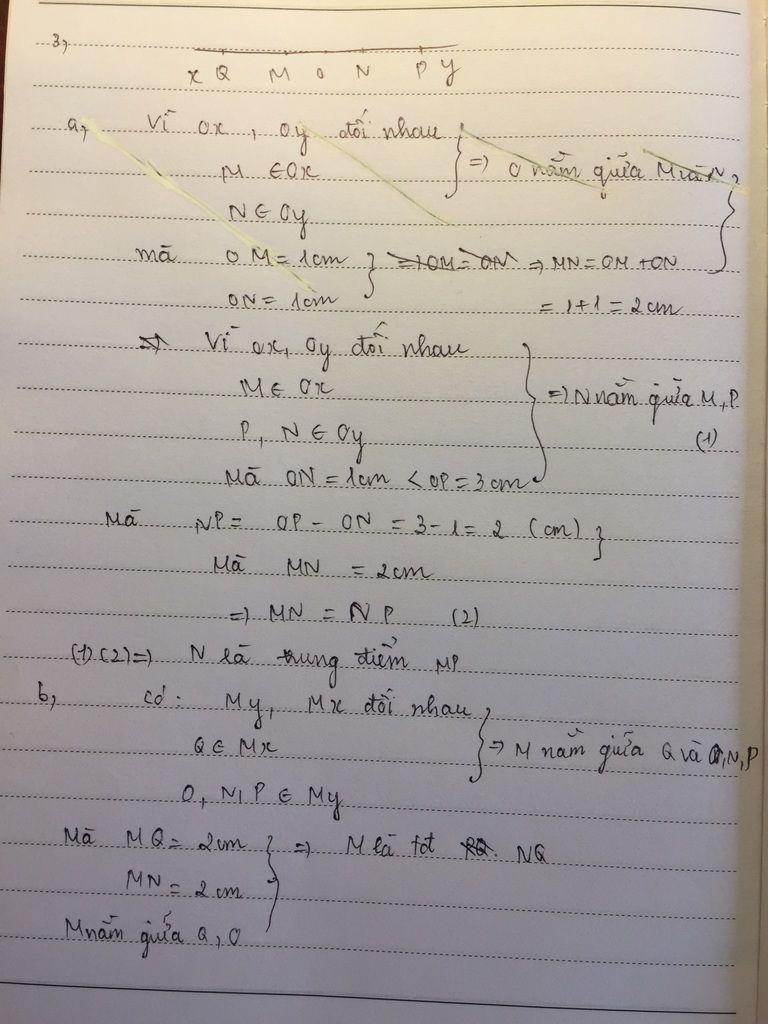 3,
x Q M O N P y
a, Vì Ox, Oy đối nhau
M ∈ Ox } => O nằm giữa M và N
N ∈ Oy
mà OM = 1cm } => OM = ON => MN = OM + ON
ON = 1cm = 1+1 = 2cm
=> Vì Ox, Oy đối nhau
M ∈ Ox } => N nằm giữa M, P
P, N ∈ Oy (1)
Mà ON = 1cm < OP = 3cm
Mà NP = OP - ON = 3-1 = 2 (cm) }
Mà MN = 2cm
=> MN = NP (2)
(1)(2) => N là trung điểm MP
b, có: My, Mx đối nhau
Q ∈ Mx } => M nằm giữa Q và O, N, P
O, N, P ∈ My
Mà MQ = 2cm } => M là tđt NQ
MN = 2cm
M nằm giữa Q, O